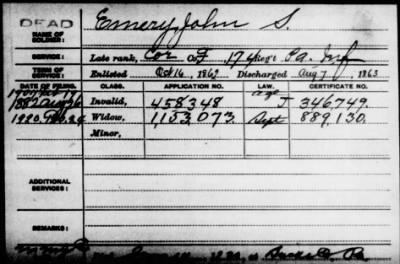 DEAD
NAME OF SOLDIER: Emery, John S.
SERVICE: Late rank, Cor. Co. F, 174 Reg't Pa. Inf
TERM OF SERVICE: Enlisted Oct 16, 1862 Discharged Aug 7, 1863
DATE OF FILING. CLASS. APPLICATION NO. LAW. CERTIFICATE NO.
1882 Aug Invalid, 458.348 age 346.749.
1920. Widow, 1,153,073. Sept 889,130.
Minor,
ADDITIONAL SERVICES:
REMARKS:
Bucks Co. Pa.